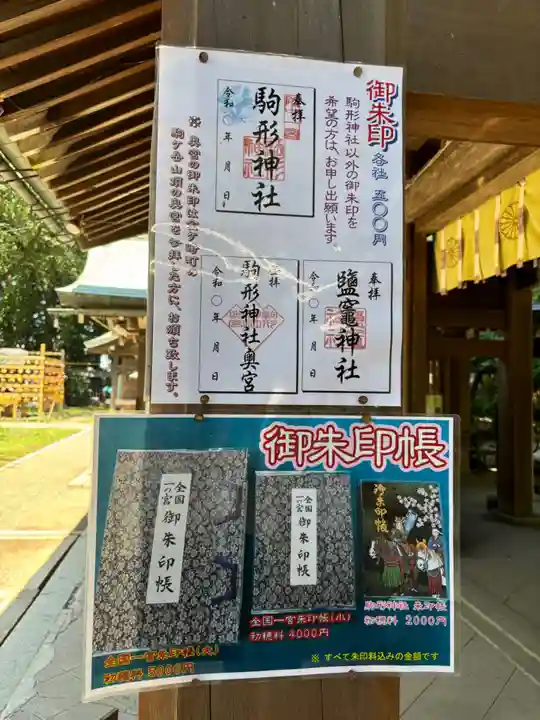 御朱印 各社 五〇〇円
駒形神社以外の御朱印を
希望の方は、お申し出願います。
奉拝
駒形神社
令和〇年 月 日
奉拝
鹽竈神社
令和〇年 月 日
拝
駒形神社奥宮
令和〇年 月 日
※ 奥宮の御朱印は
駒ケ岳山頂の奥宮を
方に、お頒ち致します。
御朱印帳
全国
一の宮 御朱印帳
全国
一の宮 御朱印帳
御朱印帳
全国一宮朱印帳(大)
初穂料 5000円
全国一宮朱印帳(小)
初穂料 4000円
駒形神社 朱印帳
初穂料 2000円
※ すべて朱印料込みの金額です